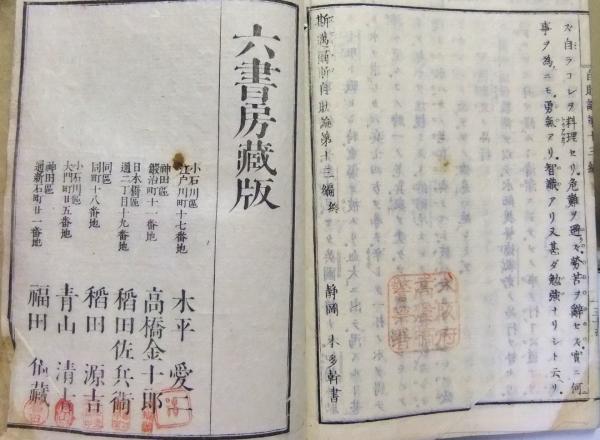 ズ自ラコレヲ料理セリ危難ヲ避ズ勞苦ヲ辭セズ實ニ何
事ヲ為ニモ勇氣アリ智識アリ又甚ダ勉強ナリシト云リ
斯邁爾斯自助論第十三編終
静岡 木多幹書
六書房藏版
小石川區
江戸川町十七番地
木平愛二
神田區
鍛冶町十一番地
高橋金十郎
日本橋區
通二丁目十九番地
稻田佐兵衛
同區
同町十八番地
稻田源吉
小石川區
大門町廿五番地
青山清吉
神田區
通新石町廿一番地
福田仙藏